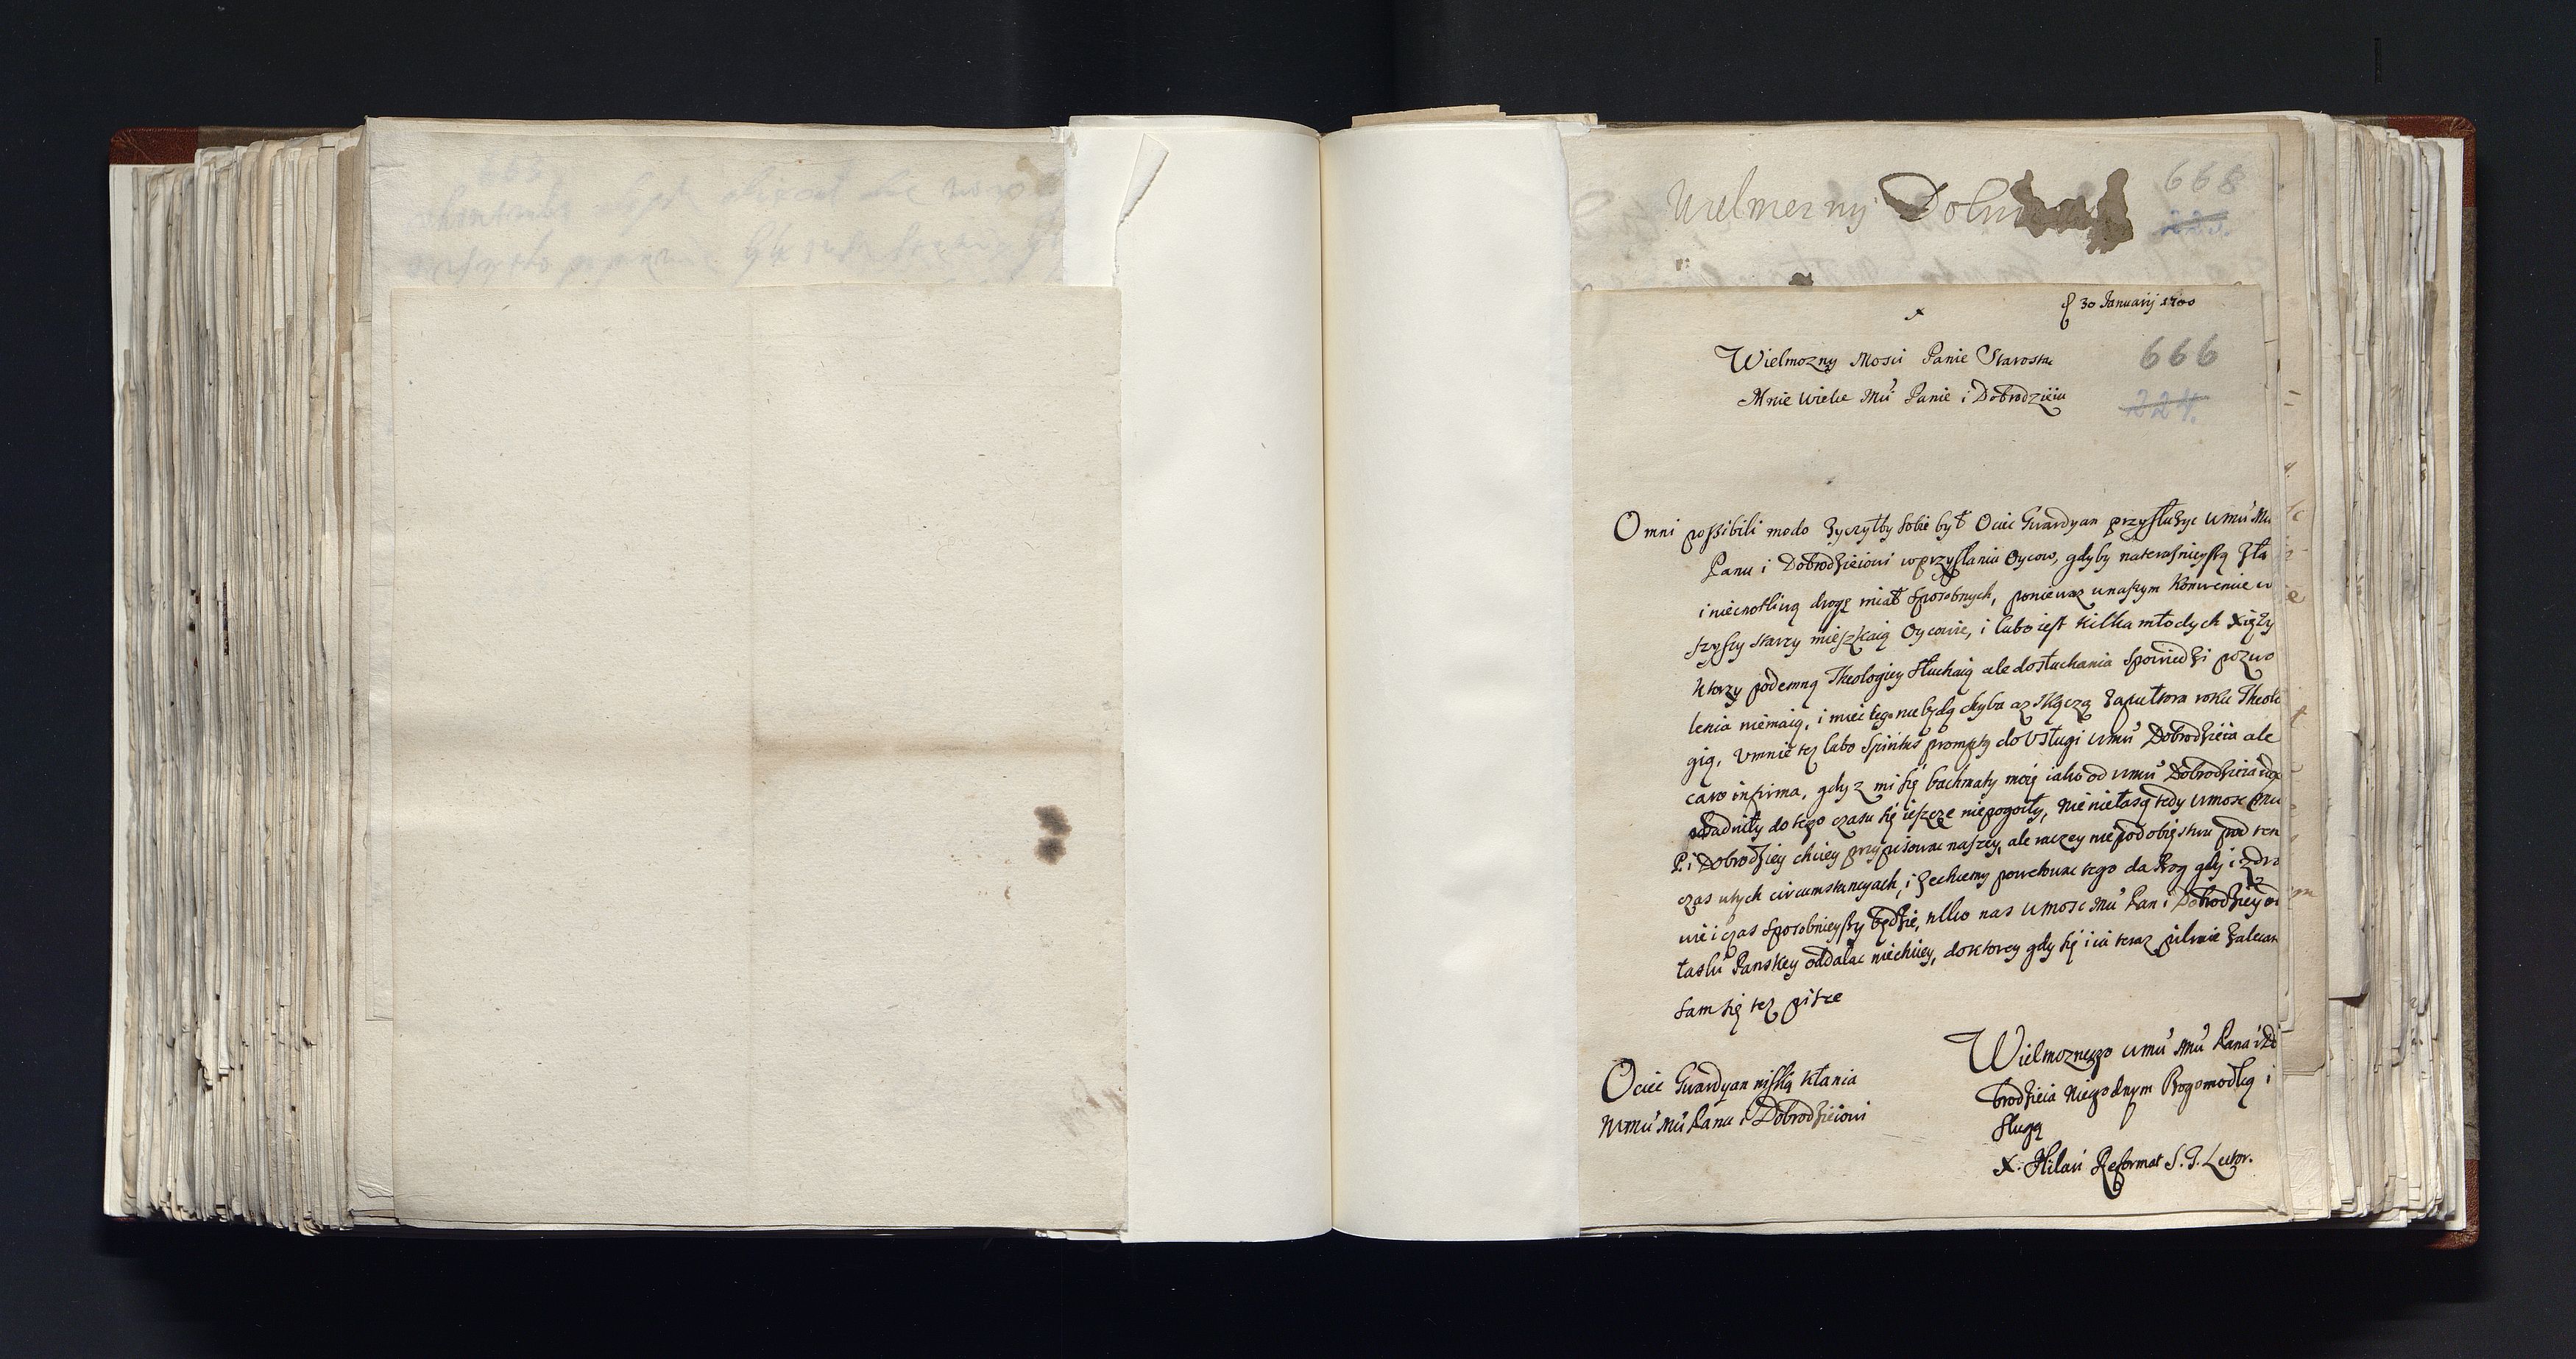 Wielmozny
668
223.
30 Januarij 1700
Wielmozny Mosci Panie Starosta
666
Mnie Wielce Mu Panie i Dobrodzieiu
224.
Omni possibili modo zyczyłby sobie był Ociec Gwardyan przysłużyc Umu Mu
Panu i Dobrodzieiowi w przysłaniu Oycow, gdyby naterasnieyszą zła
i niecnotliwą drogę miał sposobnych, poniewaz unaszym Konwencie w
szyscy starzy mieszkaią Oycowie, i lubo iest kilka młodych Xięzy
ktorzy podemną Theologiey słuchaią ale dosłuchania spowiedzi pozwo
lenia niemaią, i miec tego nie będą chyba az skączą zapułtora roku Theolo
gią, Umnie tez lubo Spiritus promptg do Usługi Umu Dobrodzieia ale
caro infirma, gdyz mi się bachmaty moię iako od Umu Dobrodzieia
do tego czasu się ieszcze niepogoiły, Nie niełasą tedy Umosc Mu
P. i Dobrodziey chciey przypisowac naszey, ale raczey niepodobięstwu pod ten
czas utych circumstancyach, i zechcemy powetowac tego da Bog gdy i zdro
wie i czas sposobnieyszy będzie, tylko nas Umosc Mu Pan i Dobrodziey od
łaski Panskey oddalac niechciey, doktorey gdy się i ia teraz pilnie zalecam
sam się tez pisze
Wielmoznego Umu Mu Pana i Do
brodzieia Niegodnym Bogomodlcą i
sługą
X. Hilari Reformat S. T. Lector.
Ociec Gwardyan niską kłania
Umu Mu Panu i Dobrodzieiowi